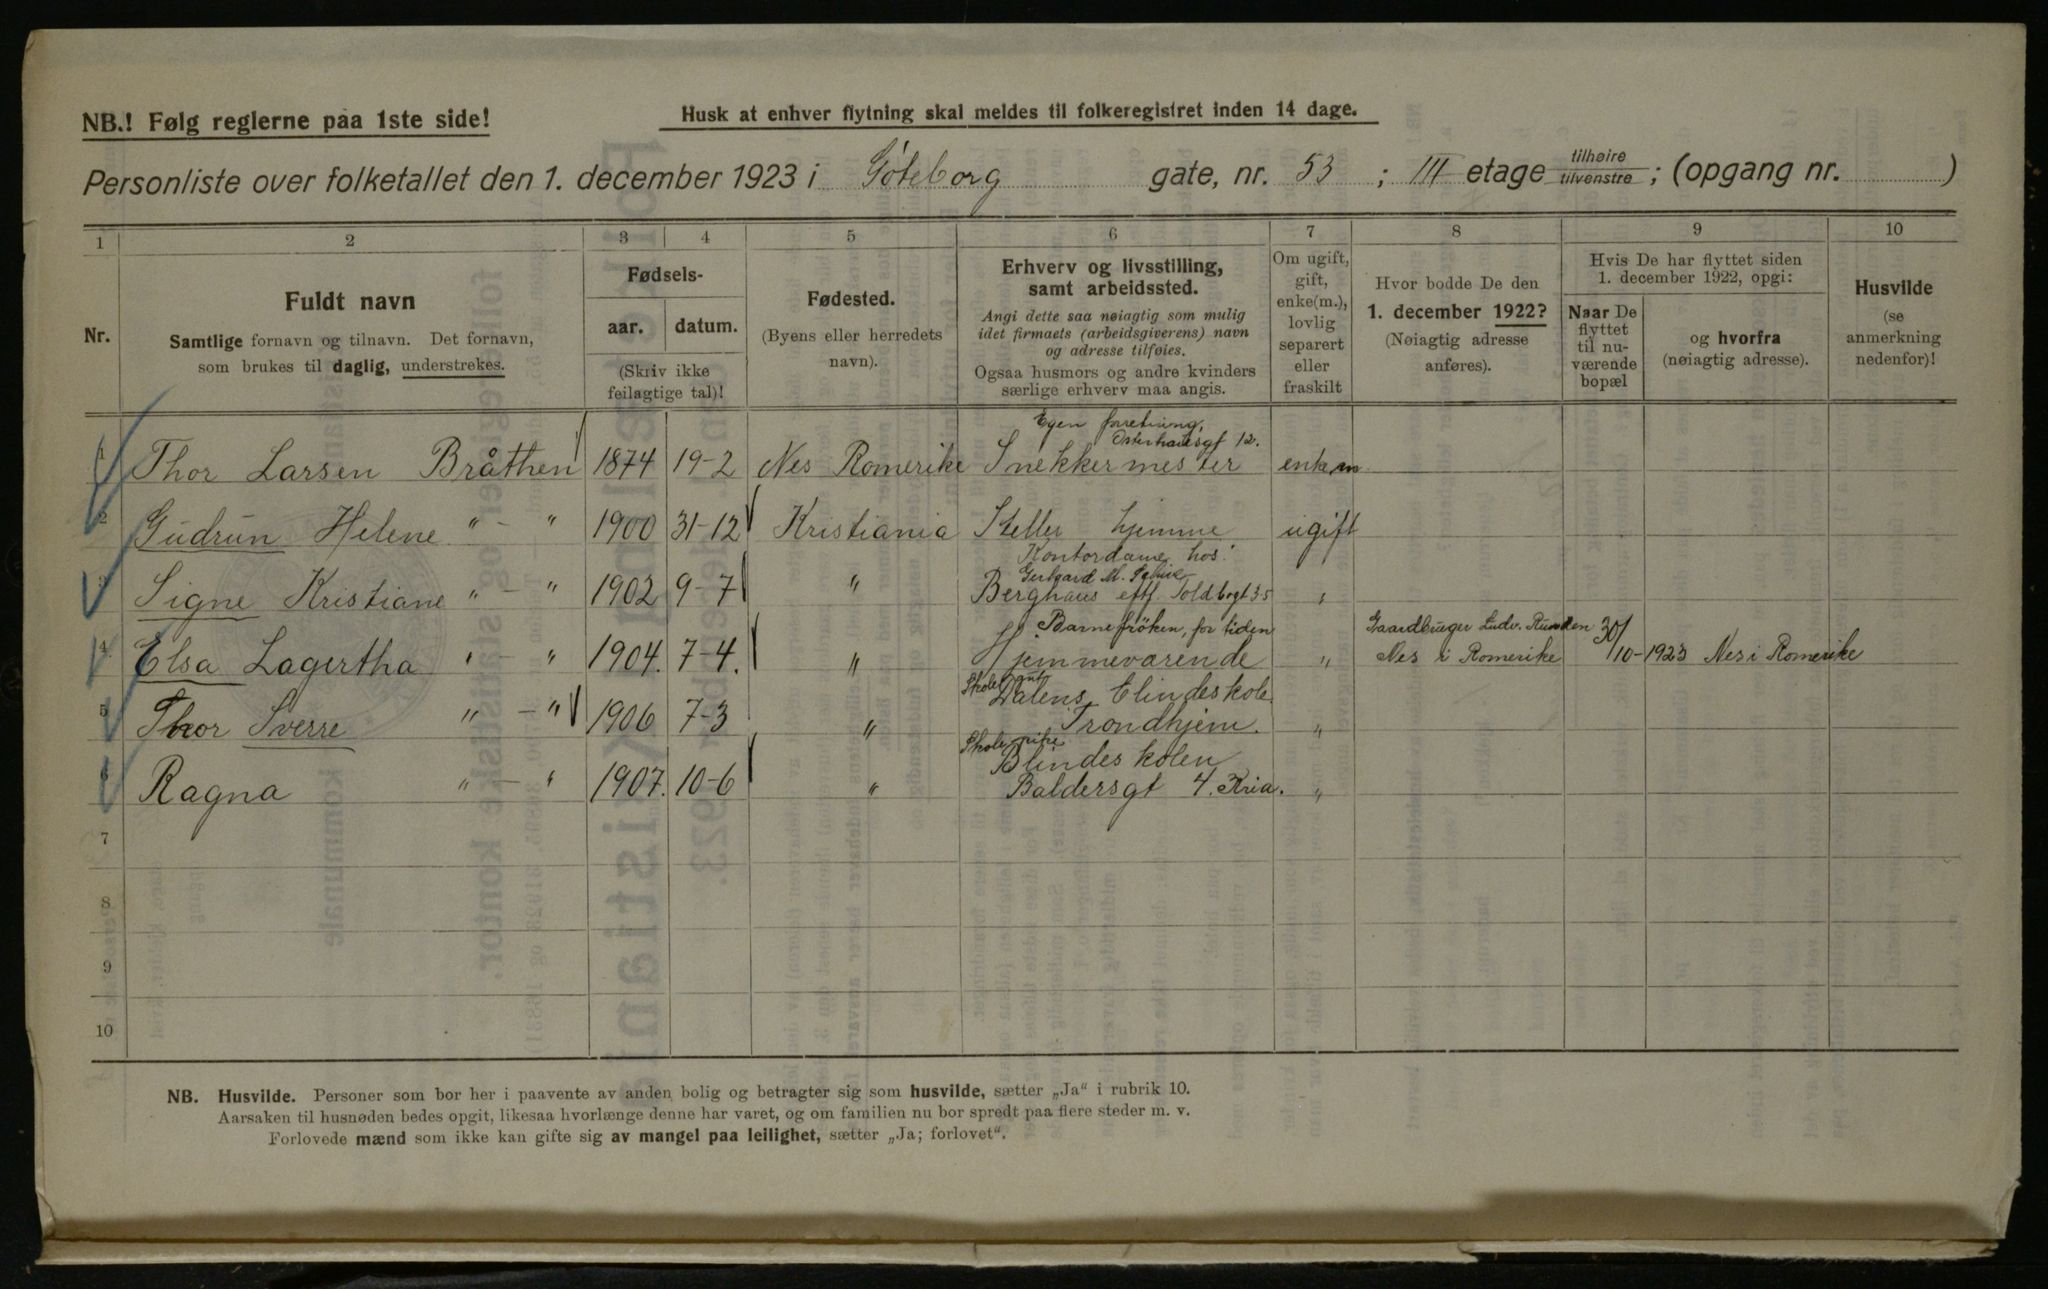 NB.! Følg reglerne paa 1ste side!
Husk at enhver flytning skal meldes til folkeregistret inden 14 dage.
Personliste over folketallet den 1. december 1923 i Göteborg gate, nr. 53 ; III etage tilhøire tilvenstre ; (opgang nr. )
1 2 3 4 5 6 7 8 9 10
Nr.
Fuldt navn
Samtlige fornavn og tilnavn. Det fornavn,
som brukes til daglig, understrekes.
Fødsels-
aar. datum.
(Skriv ikke
feilagtige tal)!
Fødested.
(Byens eller herredets
navn).
Erhverv og livsstilling,
samt arbeidssted.
Angi dette saa nøiagtig som mulig
idet firmaets (arbeidsgiverens) navn
og adresse tilføies.
Ogsaa husmors og andre kvinders
særlige erhverv maa angis.
Om ugift,
gift,
enke(m.),
lovlig
separert
eller
fraskilt
Hvor bodde De den
1. december 1922?
(Nøiagtig adresse
anføres).
Hvis De har flyttet siden
1. december 1922, opgi:
Naar De
flyttet
til nu-
værende
bopæl
og hvorfra
(nøiagtig adresse).
Husvilde
(se
anmerkning
nedenfor)!
Egen forretning,
Osterhausgt 12.
1 Thor Larsen Bråthen 1874 19-2 Nes Romerike Snekkermester enkem
2 Gudrun Helene " - " 1900 31-12 Kristiania Steller hjemme ugift
Kontordame hos:
Gerhard M.
3 Signe Kristiane " - " 1902 9-7 " Berghaus eftf. Toldbogt 35 "
Barnefröken, for tiden Gaardbruger Ludv. 30/
4 Elsa Lagertha " - " 1904. 7-4. " Hjemmevärende " Nes i Romerike 10-1923 Nes i Romerike
Dalens Blindeskole
5 Thor Sverre " - " 1906 7-3 " Trondhjem. "
Blindeskolen
6 Ragna " - " 1907. 10-6 " Baldersgt 4. Kria. "
7
8
9
10
NB. Husvilde. Personer som bor her i paavente av anden bolig og betragter sig som husvilde, sætter „Ja“ i rubrik 10.
Aarsaken til husnøden bedes opgit, likesaa hvorlænge denne har varet, og om familien nu bor spredt paa flere steder m. v.
Forlovede mænd som ikke kan gifte sig av mangel paa leilighet, sætter „Ja; forlovet“.